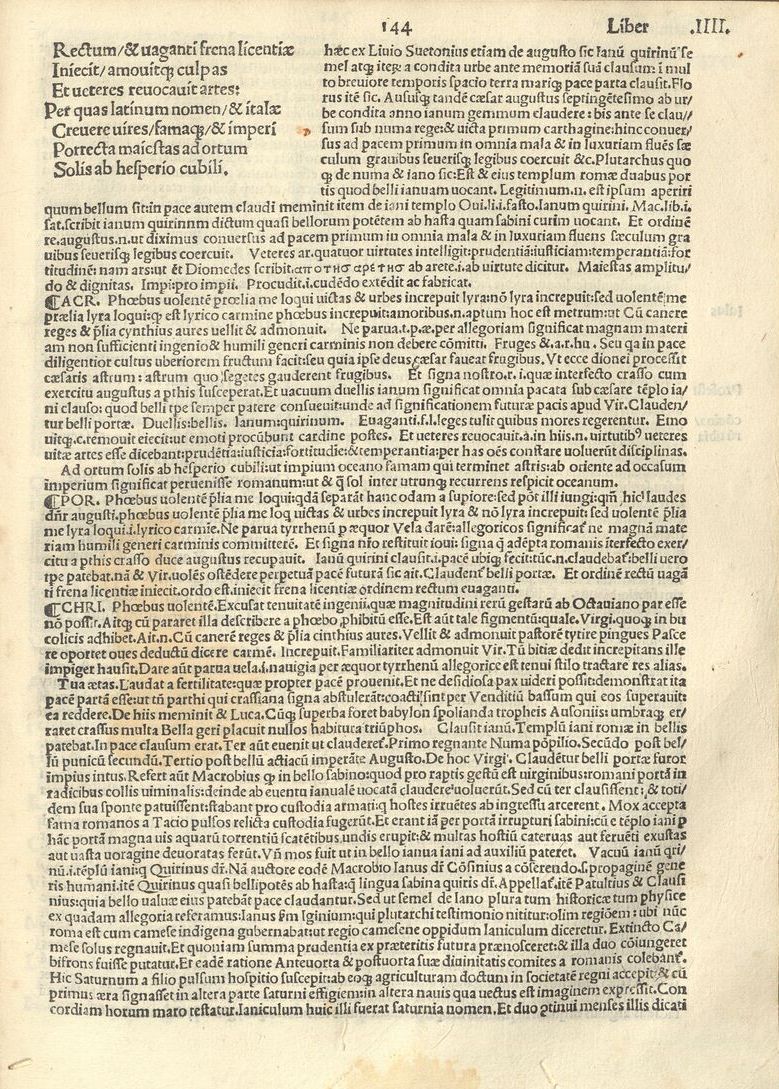 144
Liber .IIII.
Rectum/& uaganti frena licentiæ
Iniecit/amouitq; culpas
Et ueteres reuocauit artes:
Per quas latinum nomen/& italæ
Creuere uires/famaq;/& imperi
Porrecta maiestas ad ortum
Solis ab hesperio cubili.
hæc ex Liuio Suetonius etiam de augusto sic Ianū quirinū se
mel atq; iteꝝ a condita urbe ante memoriā suā clausum: i mul
to breuiore temporis spacio terra mariq; pace parta clausit. Flo
rus itē sic. Aususq; tandē cæsar augustus septingētesimo ab ur/
be condita anno ianum gemmum claudere: bis ante se clau//
sum sub numa rege: & uicta primum carthagine: hinc conuer/
sus ad pacem primum in omnia mala & in luxuriam fluēs sæ
culum grauibus seuerisq; legibus coercuit &c. Plutarchus quo
q; de numa & iano sic: Est & eius templum romæ duabus por
tis quod belli ianuam uocant. Legitimum.n. est ipsum aperiri
quum bellum sit: in pace autem claudi meminit item de iani templo Oui.li.i.fasto. Ianum quirini. Mac.lib.i.
sat. scribit ianum quirinnm dictum quasi bellorum potētem ab hasta quam sabini curim uocant. Et ordinē
re. augustus.n. ut diximus conuersus ad pacem primum in omnia mala & in luxuriam fluens sæculum gra
uibus seuerisq; legibus coercuit. Veteres ar. quatuor uirtutes intelligit: prudentiā: iusticiam: temperantiā: for
titudinē: nam ars: ut ēt Diomedes scribit. αποτης αρετης ab arete.i. ab uirtute dicitur. Maiestas amplitu/
do & dignitas. Impi: pro impii. Procudit.i. cudēdo extēdit ac fabricat.
¶ACR. Phœbus uolentē prœlia me loqui uictas & urbes increpuit lyra: nō lyra increpuit: sed uolentē me
prælia lyra loqui: q; est lyrico carmine phœbus increpuit: amoribus.n. aptum hoc est metrum: ut Cū canere
reges & p̄lia cynthius aures uellit & admonuit. Ne parua.t.p.æ. per allegoriam significat magnam materi
am non sufficienti ingenio & humili generi carminis non debere cōmitti. Fruges &.a.r.hu. Seu qa in pace
diligentior cultus uberiorem fructum facit: seu quia ipse deus cæsar faueat frugibus. Vt ecce dionei processit
cæsaris astrum: astrum quo segetes gauderent frugibus. Et signa nostro.r.i. quæ interfecto crasso cum
exercitu augustus a pthis susceperat. Et uacuum duellis ianum significat omnia pacata sub cæsare tēplo ia/
ni clauso: quod belli tpe semper patere consueuit: unde ad significationem futuræ pacis apud Vir. Clauden/
tur belli portæ. Duellis: bellis. Ianum: quirinum. Euaganti.f.l. leges tulit quibus mores regerentur. Emo
uitq;.c. remouit eiecit: ut emoti procūbunt cardine postes. Et ueteres reuocauit.a. in hiis.n. uirtutib⁹ ueteres
uitæ artes esse dicebant: prudētia: iusticia: fortitudie: & temperantia: per has oēs constare uoluerūt disciplinas.
Ad ortum solis ab hesperio cubili: ut impium oceano famam qui terminet astris: ab oriente ad occasum
imperium significat peruenisse romanum: ut & q̄ sol inter utrunq; recurrens respicit oceanum.
¶POR. Phœbus uolentē p̄lia me loqui: qdā separāt hanc odam a supiore: sed pōt illi iungi: qm̄ hic laudes
dn̄r augusti. phœbus uolentē p̄lia me loq uictas & urbes increpuit lyra & nō lyra increpuit: sed uolentē p̄lia
me lyra loqui.i. lyrico carmie. Ne parua tyrrhenū p æquor Vela darē: allegoricos significat ne magnā mate
riam humili generi carminis committerē. Et signa nr̄o restituit ioui: signa q̄ adēpta romanis iterfecto exer/
citu a pthis crasso duce augustus recupauit. Ianū quirini clausit.i. pacē ubiq; fecit: tūc.n. claudebat: belli uero
tpe patebat. nā & Vir. uolēs ostēdere perpetuā pacē futurā sic ait. Claudent belli portæ. Et ordinē rectū uagā
ti frena licentiæ iniecit. ordo est. iniecit frena licentiæ ordinem rectum euaganti.
¶CHRI. Phœbus uolentē. Excusat tenuitatē ingenii: quæ magnitudini rerū gestarū ab Octauiano par esse
nō possit. Aitq; cū pararet illa describere a phœbo phibitū esse. Est aūt tale figmentū: quale. Virgi. quoq; in bu
colicis adhibet. Ait.n. Cū canerē reges & p̄lia cinthius aures. Vellit & admonuit pastorē tytire pingues Pasce
re oportet oues deductū dicere carmē. Increpuit. Familiariter admonuit Vir. Tū bitiæ dedit increpitans ille
impiger hausit. Dare aūt parua uela.i. nauigia per æquor tyrrhenū allegorice est tenui stilo tractare res alias.
Tua ætas. Laudat a fertilitate: quæ propter pacē prouenit. Et ne desidiosa pax uideri possit: demonstrat ita
pacē partā esse: ut tn̄ parthi qui crassiana signa abstulerāt: coacti sint per Venditiū bassum qui eos superauit:
ea reddere. De hiis meminit & Luca. Cūq; superba foret babylon spolianda tropheis Ausoniis: umbraq; er/
raret crassus multa Bella geri placuit nullos habitura triūphos. Clausit ianū. Templū iani romæ in bellis
patebat. In pace clausum erat. Ter aūt euenit ut clauderet. Primo regnante Numa pōpilio. Secūdo post bel/
lū punicū secundū. Tertio post bellū actiacū imperāte Augusto. De hoc Virgi. Claudētur belli portæ furor
impius intus. Refert aūt Macrobius q; in bello sabino: quod pro raptis gestū est uirginibus: romani portā in
radicibus collis uiminalis: deinde ab euentu ianualē uocatā claudere uoluerūt. Sed cū ter clausissent: & toti/
dem sua sponte patuissent: stabant pro custodia armati: q; hostes irruētes ab ingressu arcerent. Mox accepta
fama romanos a Tacio pulsos relicta custodia fugerūt. Et erant iā per portā irrupturi sabini: cū e tēplo iani p
hāc portā magna uis aquarū torrentiū scatētibus undis erupit: & multas hostiū cateruas aut feruēti exustas
aut uasta uoragine deuoratas ferūt. Vn̄ mos fuit ut in bello ianua iani ad auxiliū pateret. Vacuū ianū qri/
nū.i. tēplū iani: q; Quirinus dr̄. Nā auctore eodē Macrobio Ianus dr̄ Cōsinius a cōserendo.s. propaginē gene
ris humani. itē Quirinus quasi bellipotēs ab hasta: q̄ lingua sabina quiris dr̄. Appellat. itē Patultius & Clausi
nius: quia bello ualuæ eius patebāt pace claudantur. Sed ut semel de Iano plura tum historicæ tum physice
ex quadam allegoria referamus: Ianus ꝑm Iginium: qui plutarchi testimonio nititur: olim regiōem: ubi nūc
roma est cum camese indigena gubernabat: ut regio camesene oppidum Ianiculum diceretur. Extincto Ca/
mese solus regnauit. Et quoniam summa prudentia ex præteritis futura prænosceret: & illa duo cōiungeret
bifrons fuisse putatur. Et eadē ratione Anteuorta & postuorta suæ diuinitatis comites a romanis colebant.
Hic Saturnum a filio pulsum hospitio suscepit: ab eoq; agriculturam doctum in societatē regni accepit: & cū
primus æra signasset in altera parte saturni effigiem: in altera nauis qua uectus est imaginem expressit. Con
cordiam horum maro testatur. Ianiculum huic illi fuerat saturnia nomen. Et duo ꝯtinui menses illis dicati